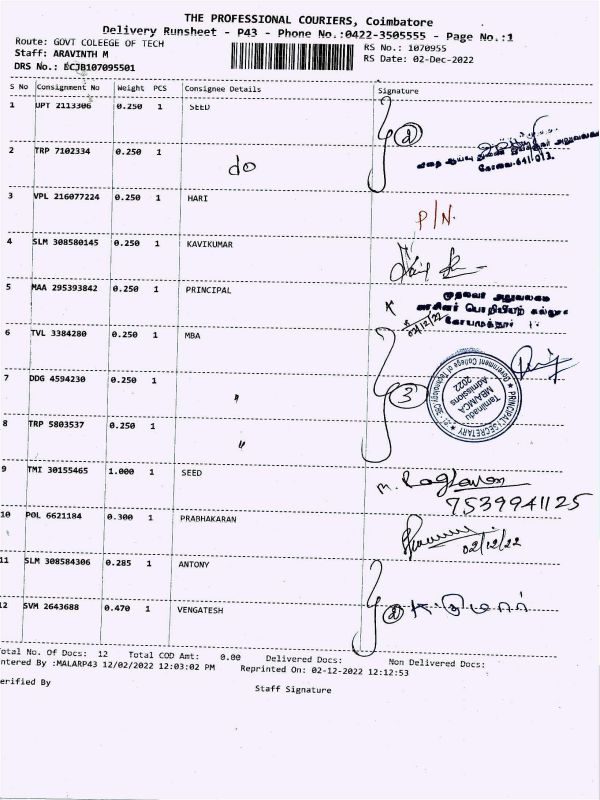 THE PROFESSIONAL COURIERS, Coimbatore
Delivery Runsheet - P43 - Phone No.:0422-3505555 - Page No.:1
Route: GOVT COLEEGE OF TECH
RS No.: 1070955
Staff: ARAVINTH M
RS Date: 02-Dec-2022
DRS No.: BCJB107095501
S No Consignment No Weight PCS Consignee Details Signature
1 UPT 2113306 0.250 1 SEED
2
2 TRP 7102334 0.250 1 do
கோவை-641 013.
3 VPL 216077224 0.250 1 HARI P/N.
4 SLM 308580145 0.250 1 KAVIKUMAR
5 MAA 295393842 0.250 1 PRINCIPAL
முதல்வர் அலுவலகம்
02/12/22
6 TVL 3384280 0.250 1 MBA
7 DDG 4594230 0.250 1 "
3
PRINCIPAL / SECRETARY
Government College of Technology
Tamilnadu
MBA/MCA
Admissions
2022
8 TRP 5803537 0.250 1 "
9 TMI 30155465 1.000 1 SEED M. Raghavan
7539941125
10 POL 6621184 0.300 1 PRABHAKARAN
02/12/22
11 SLM 308584306 0.285 1 ANTONY
12 SVM 2643688 0.470 1 VENGATESH 2
otal No. Of Docs: 12 Total COD Amt: 0.00 Delivered Docs: Non Delivered Docs:
ntered By :MALARP43 12/02/2022 12:03:02 PM Reprinted On: 02-12-2022 12:12:53
erified By
Staff Signature